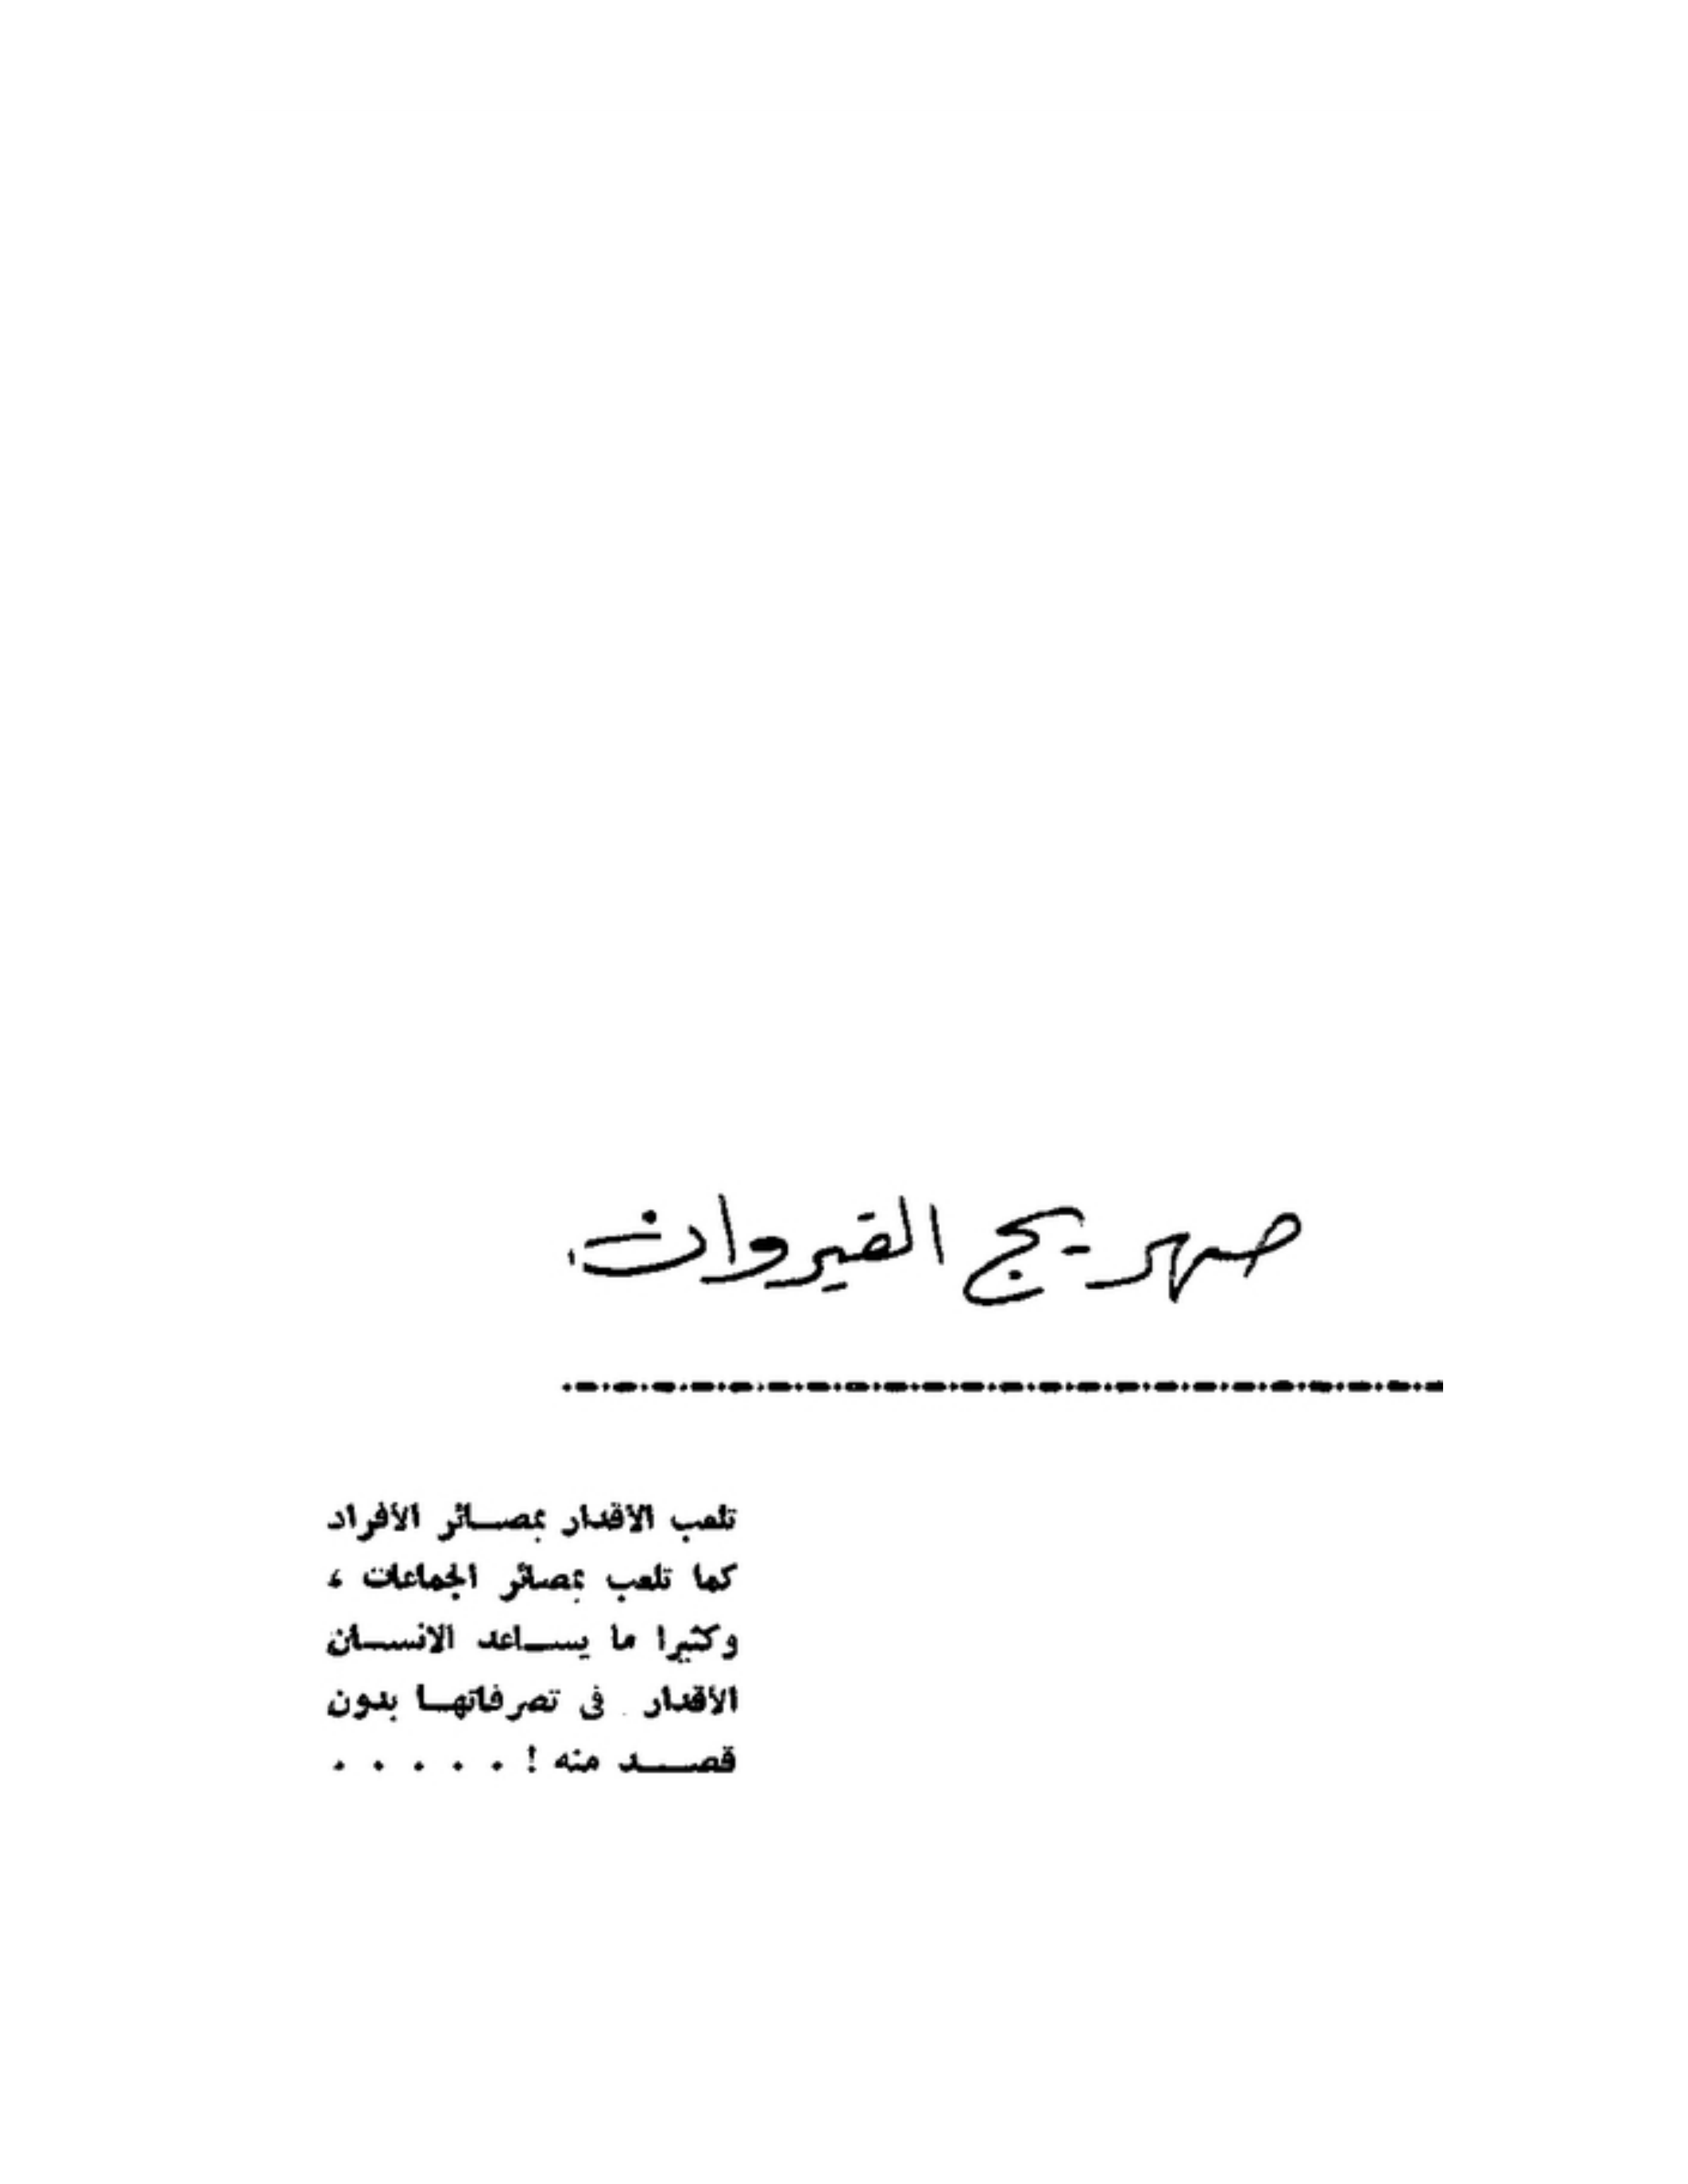 صهريج القيروان
تلعب الأقدار بمصائر الأفراد
كما تلعب بمصائر الجماعات ،
وكثيرا ما يساعد الانسان
الأقدار فى تصرفاتها بدون
قصد منه ! . . . . .